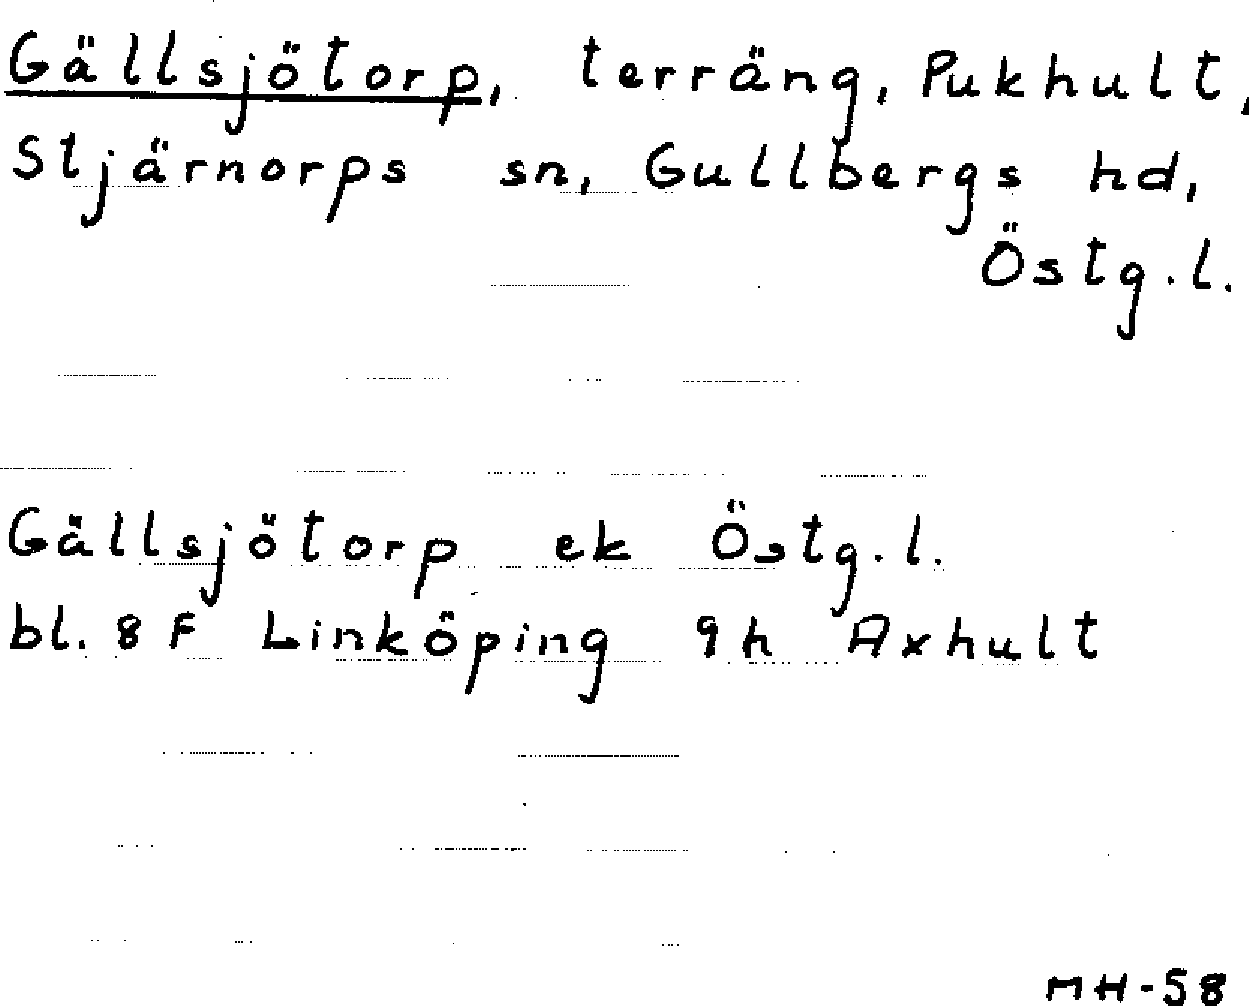 Gällsjötorp, terräng, Pukhult,
Stjärnorps sn, Gullbergs hd,
Östg.l.
Gällsjötorp ek Östg.l.
bl. 8F Linköping 9h Axhult
MH-58